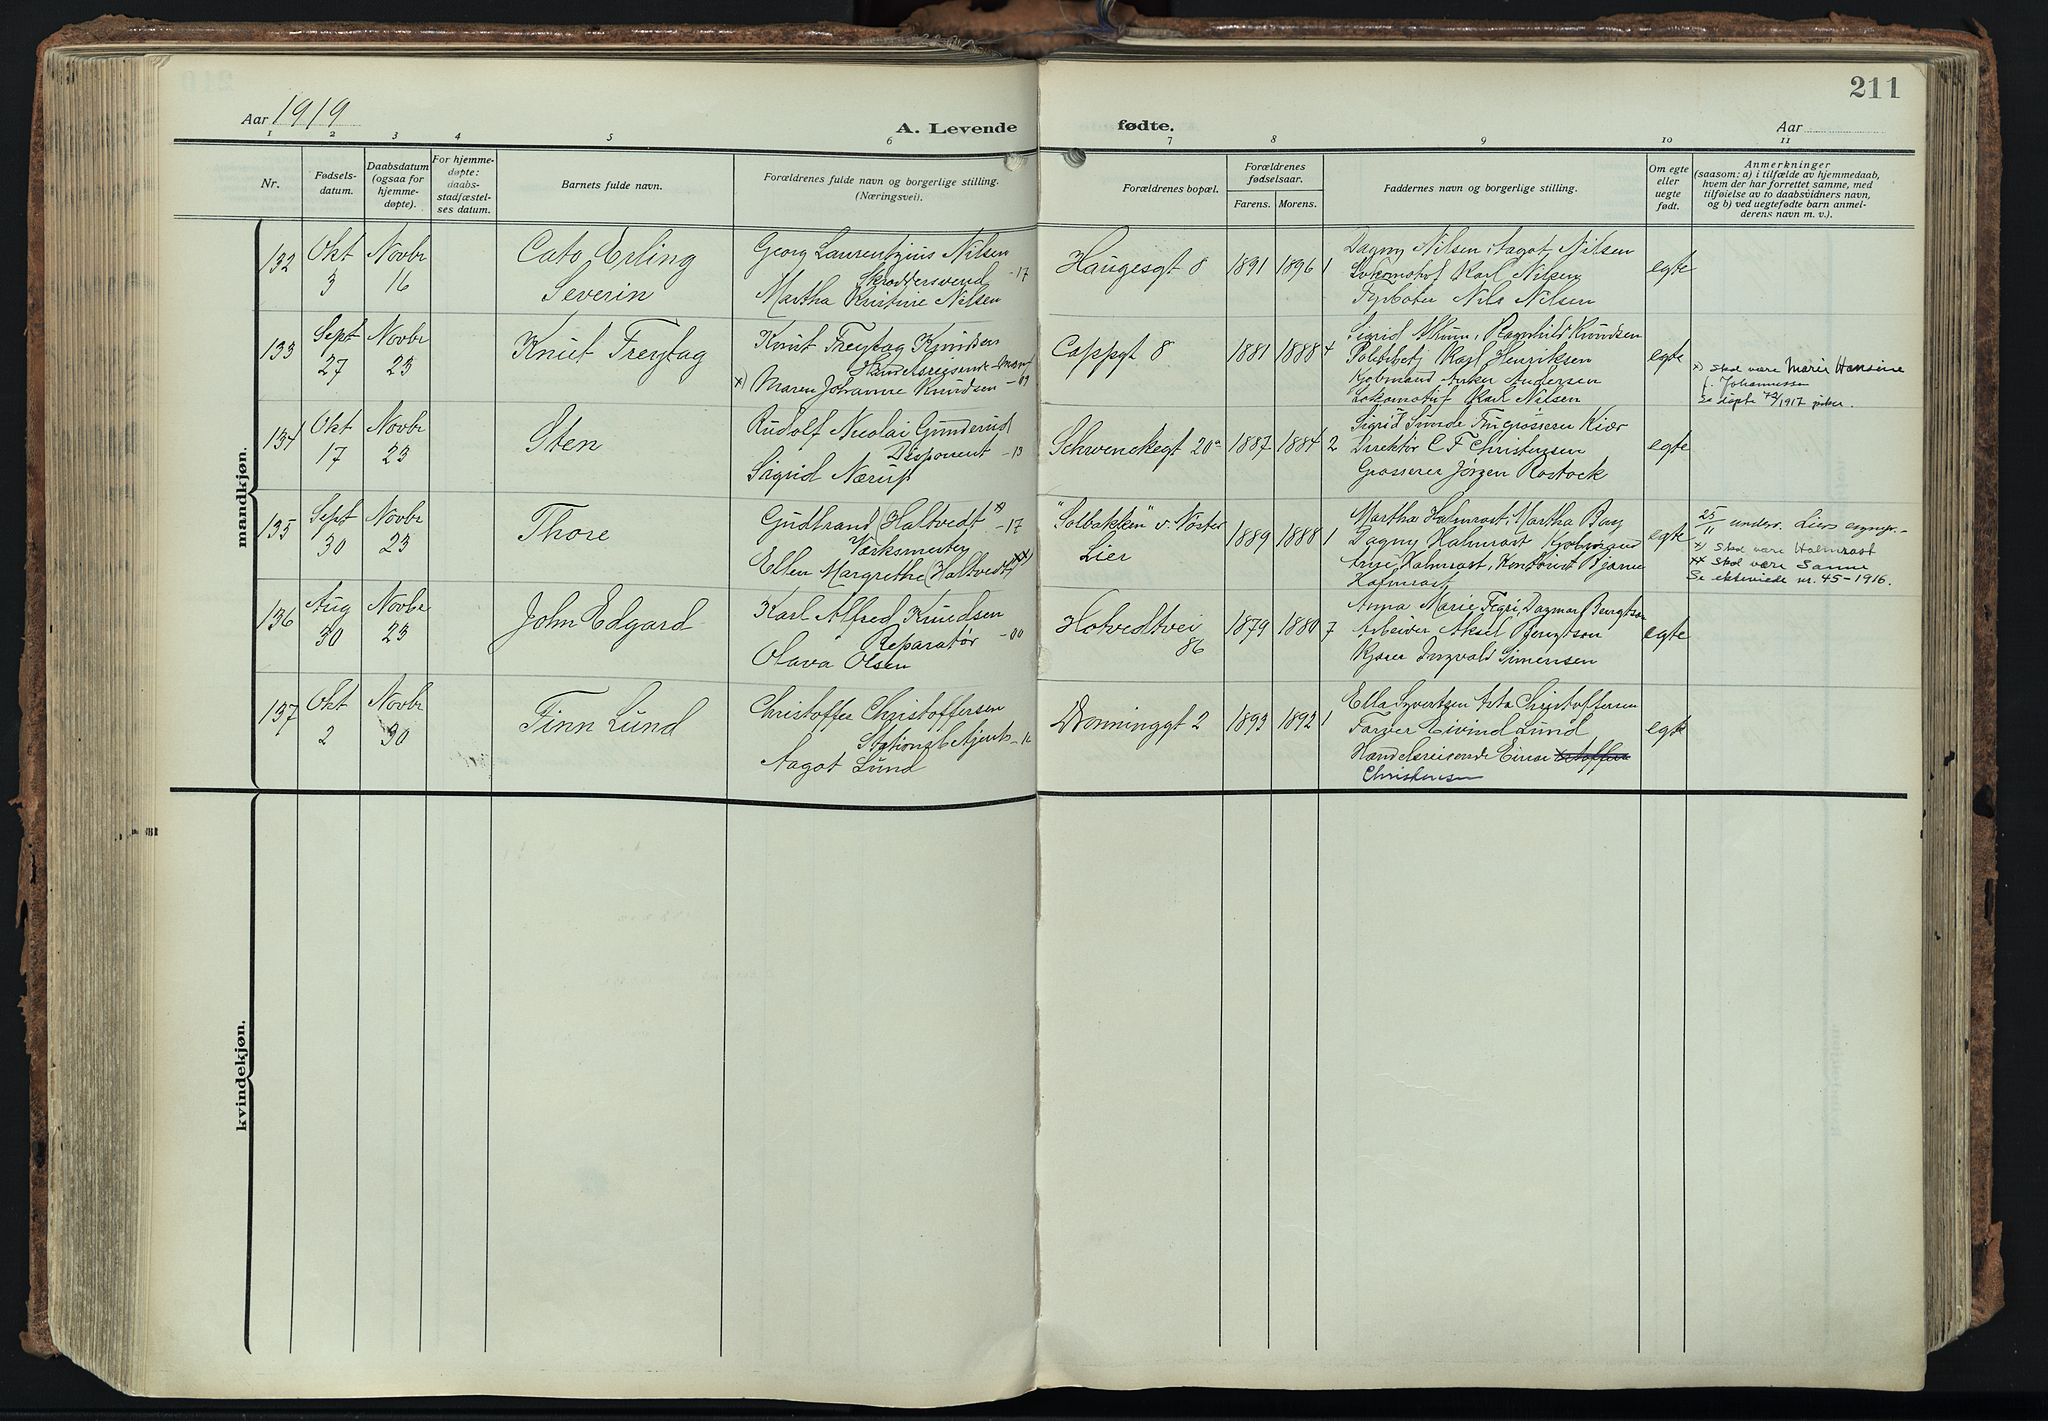 211
Aar 1919
A. Levende fødte.
Aar
1 2 3 4 5 6 7 8 9 10 11
Nr.
Fødsels-
datum.
Daabsdatum
(ogsaa for
hjemme-
døpte).
For hjemme-
døpte:
daabs-
stadfæstel-
ses datum.
Barnets fulde navn.
Forældrenes fulde navn og borgerlige stilling.
(Næringsvei).
Forældrenes bopæl.
Forældrenes
fødselsaar.
Farens. Morens.
Faddernes navn og borgerlige stilling.
Om egte
eller
uegte
født.
Anmerkninger
(saasom: a) i tilfælde av hjemmedaab,
hvem der har forrettet samme, med
tilføielse av to daabsvidners navn,
og b) ved uegtefødte barn anmel-
derens navn m. v.).
mandkjøn.
132
Okt
3
Novbr
16
Cato Erling
Severin
Georg Laurentzius Nilsen
Skræddersvend -17
Martha Kristine Nilsen
Haugesgt 8
1891 1896 1
Dagny Nilsen, Aagot Nilsen
Lokomotivf Karl Nilsen
Fyrbøter Nils Nilsen
egte
133
Sept
27
Novbr
23
Knut Freytag
Knut Freytag Knudsen
Handelsreisende
x) Maren Johanne Knudsen -09
Cappgt 8
1881 1888 4
Sigrid Thunn, Ragnhild Knudsen
Politibetj Karl Henriksen
Kjøbmand Anker Andersen
Lokomotivf Karl Nilsen
egte
x) skal være Marie Hansine
f. Johannessen
Se døpte 72/1917 piker.
134
Okt
17
Novbr
23
Sten
Rudolf Nicolai Gunderud
Disponent -13
Sigrid Nærup
Schwenckegt 20a
1887 1884 2
Sigrid Sunde Fru grosserer Kiær
Direktør C F Christensen
Grosserer Jørgen Rostock
egte
135
Sept
30
Novbr
23
Thore
Gudbrand (Haltvedt x)
Værksmester -17
Ellen Margrethe (Haltvedt xx)
"Solbakken" v. Nøste
Lier
1889 1888 1
Martha Halmrast, Martha Berg
Dagny Halmrast
Arne Halmrast, Kontorist Bjarne
Halmrast
egte
25/11 underr. Liers
x) skal være Halmrast
xx skal være Sanne
Se ekteviede nr. 45-1916.
136
Aug
30
Novbr
23
John Edgard
Karl Alfred Knudsen
Reparatør -00
Olava Olsen
Hotvedtvei
86
1879 1880 7
Anna Marie Fegri, Dagmar Bengtson
Arbeider Aksel Bengtson
Kjører Ingvald Simensen
egte
137
Okt
2
Novbr
30
Finn Lund
Christoffer Christoffersen
Stationsbetjent
Aagot Lund
Dronninggt 2
1893 1892 1
Ella Syvertsen Asta Christoffersen
Farver Eivind Lund
Handelsreisende Einar
Christensen
egte
kvindekjøn.